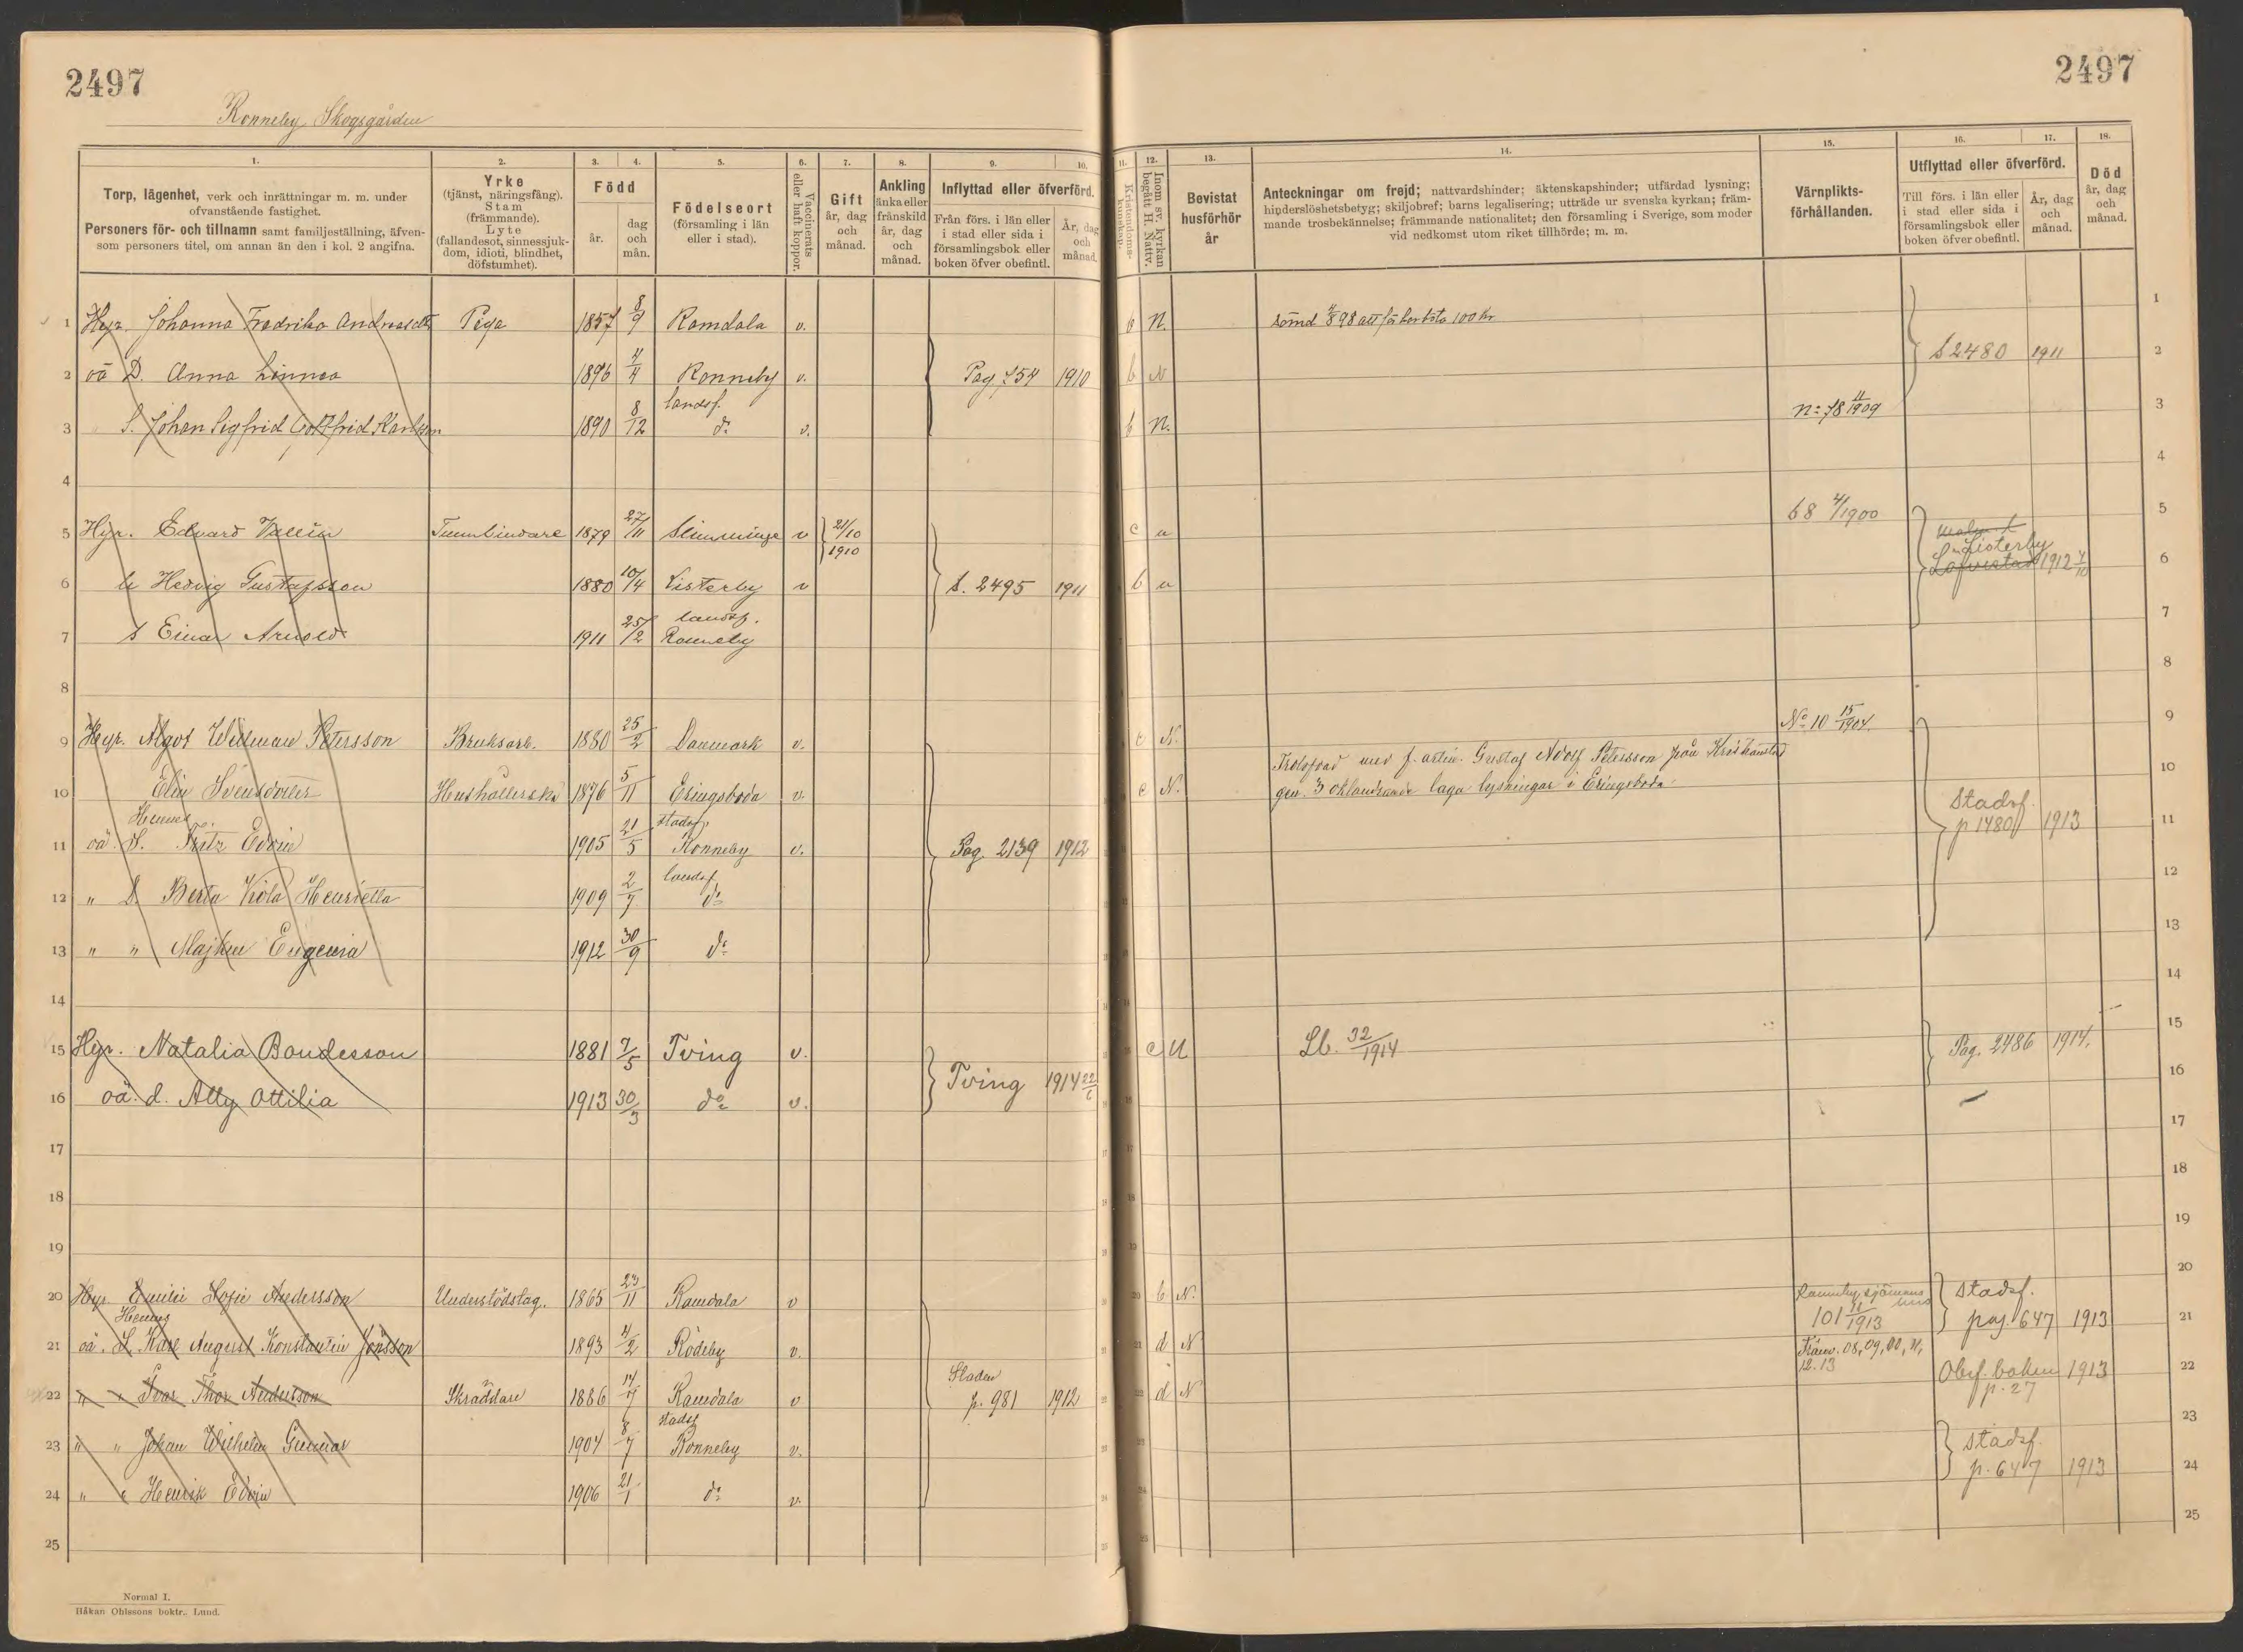 2497
2497
Ronneby Skogsgården
1. 2. 3. 4. 5. 6. 7. 8. 9. 10. 11. 12. 13. 14. 15. 16. 17. 18.
Torp, lägenhet, verk och inrättningar m. m. under
ofvanstående fastighet.
Personers för- och tillnamn samt familjeställning, äfven-
som personers titel, om annan än den i kol. 2 angifna.
Yrke
(tjänst, näringsfång).
Stam
(främmande).
Lyte
(fallandesot, sinnessjuk-
dom, idioti, blindhet,
döfstumhet).
Född
år.
dag
och
mån.
Födelseort
(församling i län
eller i stad).
Vaccinerats
eller haft koppor.
Gift
år, dag
och
månad.
Ankling
änka eller
frånskild
år, dag
och
månad.
Inflyttad eller öfverförd.
Från förs. i län eller
i stad eller sida i
församlingsbok eller
boken öfver obefintl.
År, dag
och
månad.
Kristendoms-
kunskap.
Inom sv. kyrkan
begått H. Nattv.
Bevistat
husförhör
år
Anteckningar om frejd; nattvardshinder; äktenskapshinder; utfärdad lysning;
hinderslöshetsbetyg; skiljobref; barns legalisering; utträde ur svenska kyrkan; främ-
mande trosbekännelse; främmande nationalitet; den församling i Sverige, som moder
vid nedkomst utom riket tillhörde; m. m.
Värnplikts-
förhållanden.
Utflyttad eller öfverförd.
Till förs. i län eller
i stad eller sida i
församlingsbok eller
boken öfver obefintl.
År, dag
och
månad.
Död
år, dag
och
månad.
1 Hyr. Johanna Fredrika Andreasdtr Piga 1857 8/9 Ramdala v. b N. 1
2 oä D. Anna Linnea 1896 4/4 Ronneby v. Pag 754 1910 b N S 2480 1911 2
landsf.
3 S. Johan Sigfrid Gottfrid Karlsson 1890 8/12 d:o v. b N. No 78 11/1909 3
4 4
5 Hyr. Edvard Wallin Tunnbindare 1879 27/11 Slimminge v 21/10 1910 c u 68 4/1900 5
6 h Hedvig Gustafsson 1880 10/4 Listerby v S. 2495 1911 b u Listerby 1912 4/10 6
landsf.
7 s Einar Arnold 1911 25/2 Ronneby 7
8 8
9 Hyr. Algot Willmar Petersson Bruksarb. 1880 25/2 Danmark v. c N. No 10 15/1904. 9
Trolofvad med f. artill. Gustaf Adolf Petersson från Kristianstad
10 Elin Svensdotter Hushållerska 1876 5/11 Eringsboda v. c N. gen. 3 oklandrade laga lysningar i Eringsboda 10
Hennes
stadsf.
11 oä. S. Fritz Edvin 1905 21/5 Ronneby v. Pag. 2139 1912 Stadsf. p 1480 1913 11
landsf
12 " D. Berta Viola Henrietta 1909 2/7 d:o 12
13 " " Majken Eugenia 1912 30/9 d:o 13
14 14
15 Hyr. Natalia Bondesson 1881 7/5 Tving v. c U Lb. 32/1914 Pag. 2486 1914. 15
16 oä. d. Ally Ottilia 1913 30/3 do v. Tving 1914 22/6 16
17 17
18 18
19 19
20 Hyr Emilie Sofie Andersson Understödstag. 1865 23/11 Ramdala v b N. Stadsf. 20
Hennes
21 oä. S. Karl August Konstantin Jönsson 1893 4/2 Rödeby v. d N 101 11/1913 pag. 647 1913 21
12.13
22 " " Ivar Thor Andersson Skräddare 1886 14/7 Ramdala v Staden p. 981 1912 d N Obef. boken p. 27 1913 22
stadsf
23 " " Johan Wilhelm Gunnar 1904 8/7 Ronneby v. Stadsf. 23
24 " " Henrik Edvin 1906 21/1 d:o v. p. 647 1913 24
25 25
Normal I.
Håkan Ohlssons boktr., Lund.